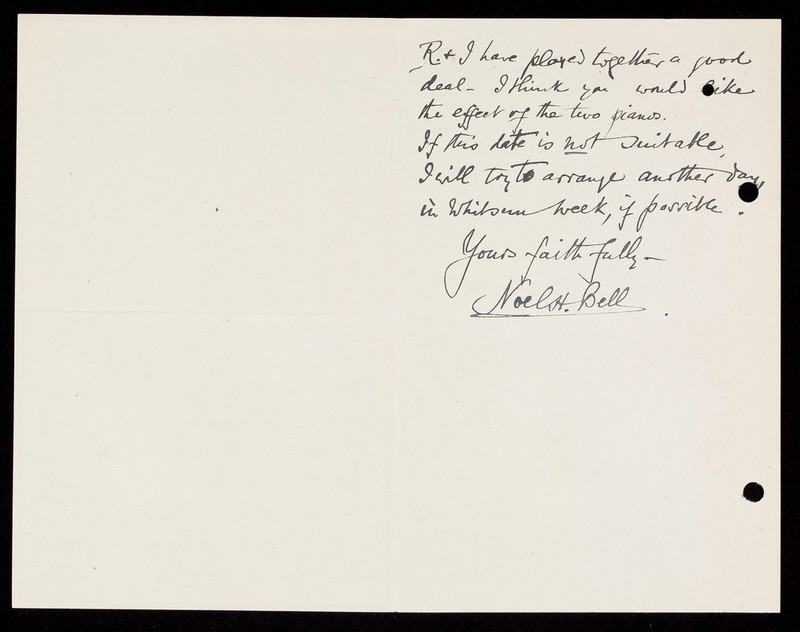 R. & I have played together a good
deal - I think you would like
the effect of the two pianos.
If this date is not suitable,
I will try to arrange another day,
in Whitsun week, if possible.
Yours faithfully -
Noel H. Bell.